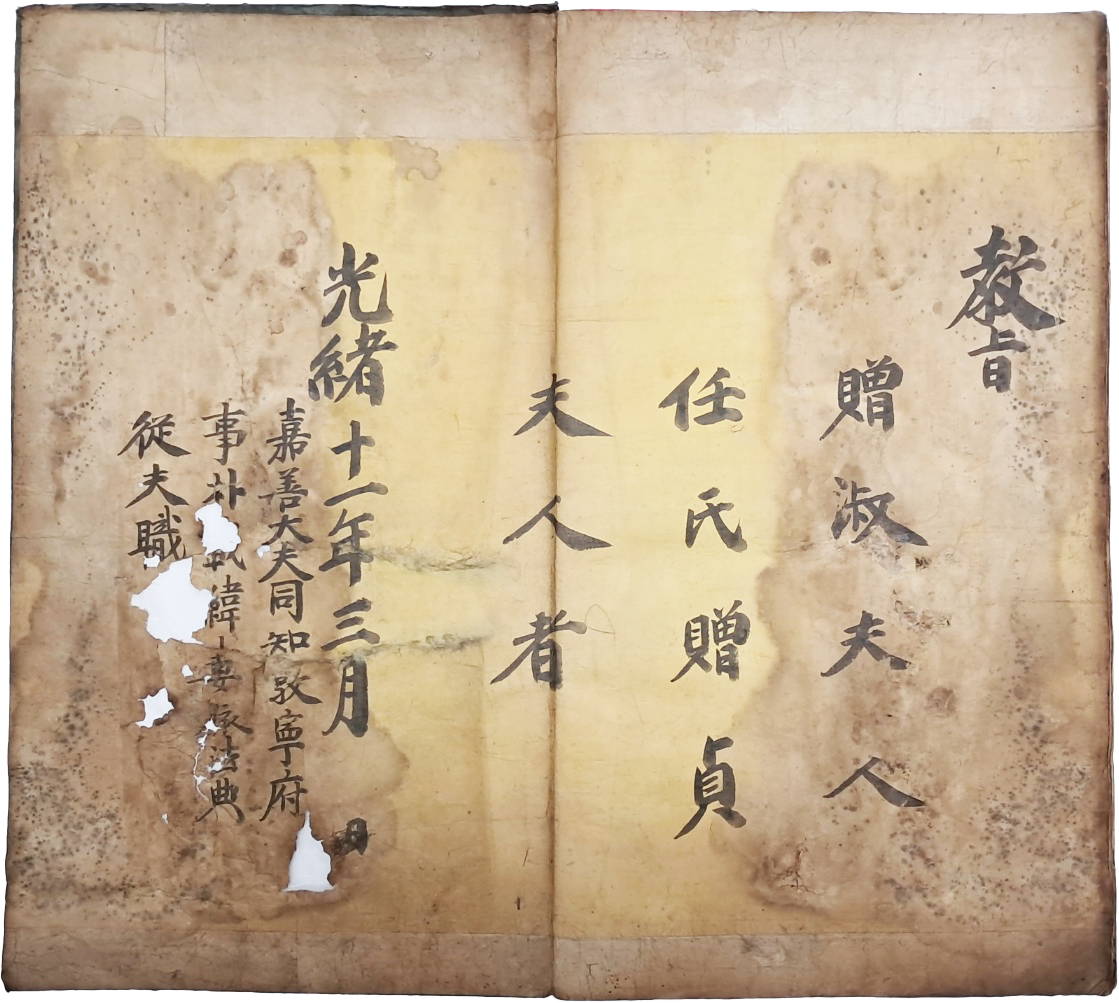 教旨
贈淑夫人
任氏贈貞
夫人者
光緒十一年三月 日
嘉善大夫同知敦寧府
事朴 緯妻依法典
從夫職